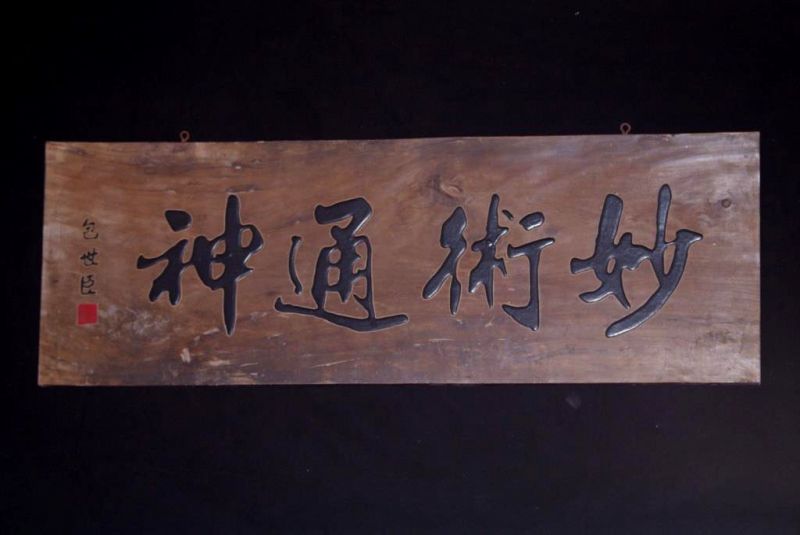 妙術通神
包世臣